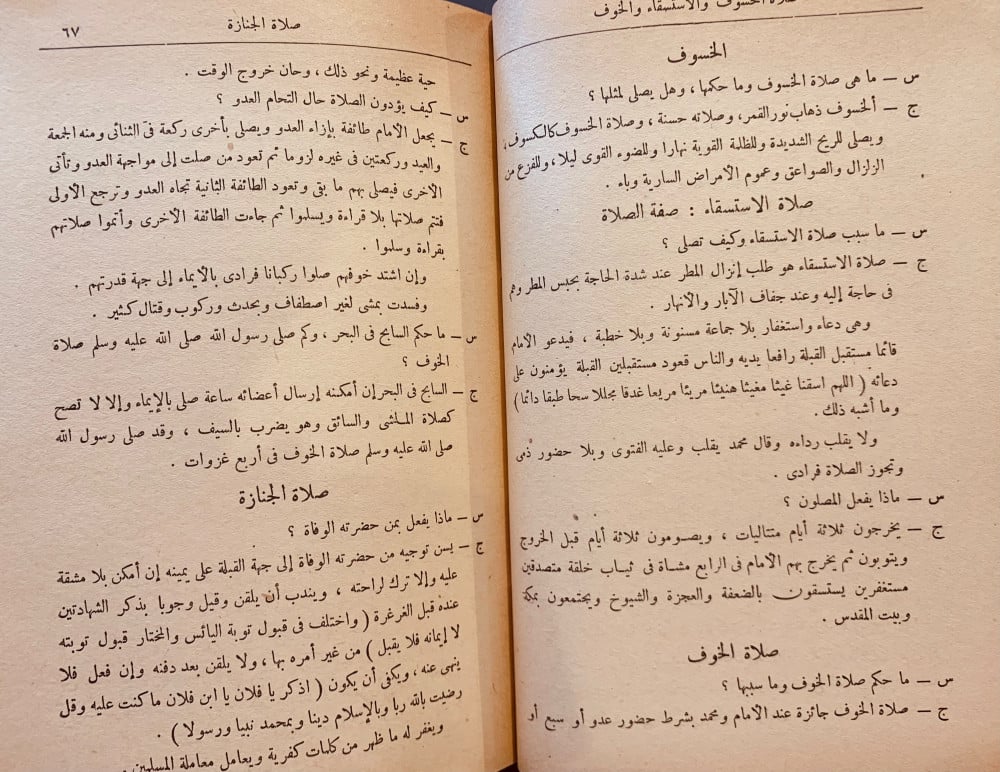 صلاة الخسوف والاستسقاء والخوف
الخسوف
س ــ ما هى صلاة الخسوف وما حكمها ، وهل يصلى لمثلها ؟
ج ــ ألخسوف ذهاب نور القمر، وصلاته حسنة ، وصلاة الخسوف كالكسوف ،
ويصلى للريح الشديدة وللظلمة القوية نهارا وللضوء القوى ليلا ، وللفزع من
الزلزال والصواعق وعموم الأمراض السارية وباء .
صلاة الاستسقاء : صفة الصلاة
س ــ ما سبب صلاة الاستسقاء وكيف تصلى ؟
ج ــ صلاة الاستسقاء هو طلب إنزال المطر عند شدة الحاجة بحبس المطر وهم
فى حاجة إليه وعند جفاف الآبار والأنهار .
وهى دعاء واستغفار بلا جماعة مسنونة وبلا خطبة ، فيدعو الامام
قائما مستقبل القبلة رافعا يديه والناس قعود مستقبلين القبلة يؤمنون على
دعائه ( اللهم اسقنا غيثا مغيثا هنيئا مريئا مريعا غدقا مجللا سحا طبقا دائما )
وما أشبه ذلك .
ولا يقلب رداءه وقال محمد يقلب وعليه الفتوى وبلا حضور ذمى
وتجوز الصلاة فرادى .
س ــ ماذا يفعل المصلون ؟
ج ــ يخرجون ثلاثة أيام متتاليات ، ويصومون ثلاثة أيام قبل الخروج
ويتوبون ثم يخرج بهم الامام فى الرابع مشاة فى ثياب خلقة متصدقين
مستغفرين يستسقون بالضعفة والعجزة والشيوخ ويجتمعون بمكة
وبيت المقدس .
صلاة الخوف
س ــ ما حكم صلاة الخوف وما سببها ؟
ج ــ صلاة الخوف جائزة عند الامام ومحمد بشرط حضور عدو أو سبع أو
صلاة الجنازة ٦٧
حية عظيمة ونحو ذلك ، وحان خروج الوقت .
س ــ كيف يؤدون الصلاة حال التحام العدو ؟
ج ــ يجعل الامام طائفة بإزاء العدو ويصلى بأخرى ركعة فى الثنائى ومنه الجمعة
والعيد وركعتين فى غيره لزوما ثم تعود من صلت إلى مواجهة العدو وتأتى
الأخرى فيصلى بهم ما بقى وتعود الطائفة الثانية تجاه العدو وترجع الأولى
فتتم صلاتها بلا قراءة ويسلموا ثم جاءت الطائفة الأخرى وأتموا صلاتهم
بقراءة وسلموا .
وإن اشتد خوفهم صلوا ركبانا فرادى بالأيماء إلى جهة قدرتهم .
وفسدت بمشى لغير اصطفاف وبحدث وركوب وقتال كثير .
س ــ ما حكم السابح فى البحر ، وكم صلى رسول الله صلى الله عليه وسلم صلاة
الخوف ؟
ج ــ السابح فى البحر إن أمكنه إرسال أعضائه ساعة صلى بالإيماء وإلا لا تصح
كصلاة الماشى والسائق وهو يضرب بالسيف ، وقد صلى رسول الله
صلى الله عليه وسلم صلاة الخوف فى أربع غزوات .
صلاة الجنازة
س ــ ماذا يفعل بمن حضرته الوفاة ؟
ج ــ يسن توجيه من حضرته الوفاة إلى جهة القبلة على يمينه إن أمكن بلا مشقة
عليه وإلا ترك لراحته ، ويندب أن يلقن وقيل وجوبا بذكر الشهادتين
عنده قبل الغرغرة ( واختلف فى قبول توبة اليائس والمختار قبول توبته
لا إيمانه فلا يقبل ) من غير أمره بها ، ولا يلقن بعد دفنه وإن فعل فلا
ينهى عنه ، ويكفى أن يكون ( اذكر يا فلان يا ابن فلان ما كنت عليه وقل
رضيت بالله ربا وبالإسلام دينا وبمحمد نبيا ورسولا ) .
ويغفر له ما ظهر من كلمات كفرية ويعامل معاملة المسلمين .